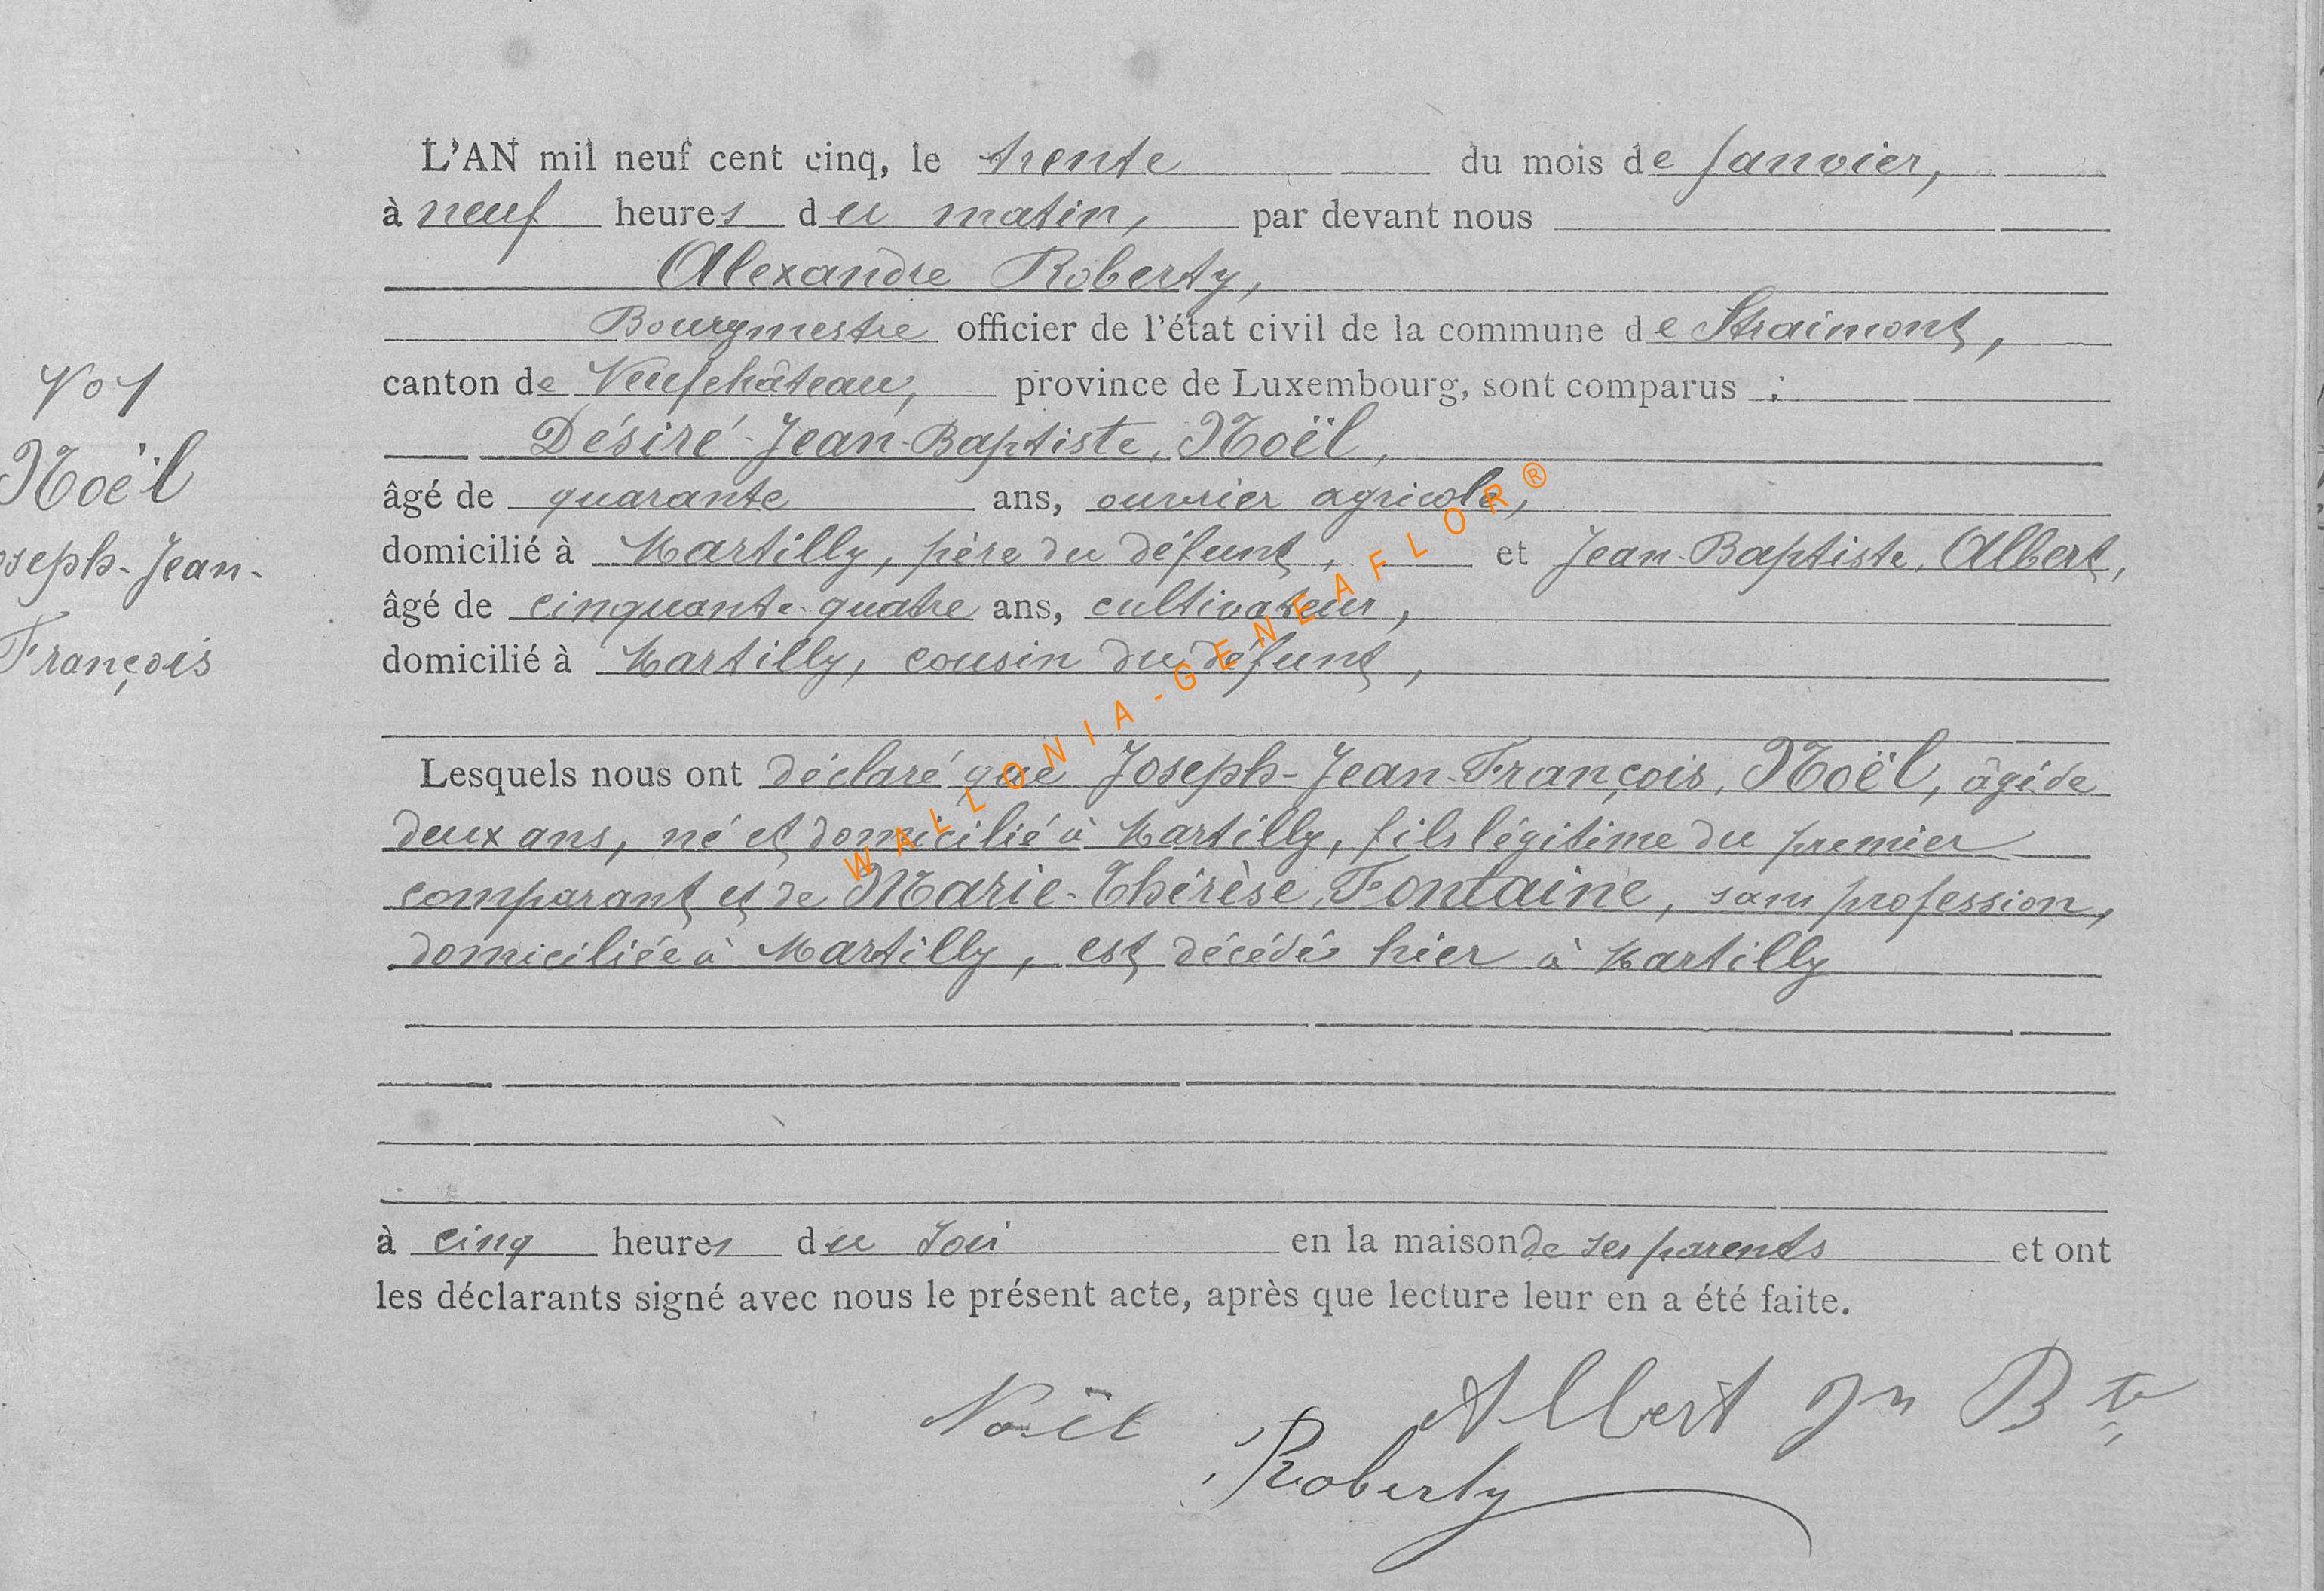 L'AN mil neuf cent cinq, le trente du mois de Janvier,
à neuf heures du matin, par devant nous
Alexandre Roberty,
Bourgmestre officier de l'état civil de la commune de Straimont,
canton de Neufchâteau, province de Luxembourg, sont comparus :
Désiré-Jean-Baptiste, Noël,
âgé de quarante ans, ouvrier agricole,
domicilié à Martilly, père du défunt, et Jean-Baptiste, Albert,
âgé de cinquante-quatre ans, cultivateur,
domicilié à Martilly, cousin du défunt,
No 1
Noël
oseph-Jean-
François
Lesquels nous ont déclaré que Joseph-Jean-François, Noël, âgé de
deux ans, né et domicilié à Martilly, fils légitime du premier
comparant et de Marie-Thérèse, Fontaine, sans profession,
domiciliée à Martilly, est décédé hier à Martilly
à cinq heures du soir en la maison de ses parents et ont
les déclarants signé avec nous le présent acte, après que lecture leur en a été faite.
Noël Albert Jn Bte
Roberty
WALLONIA-GENEAFLOR®